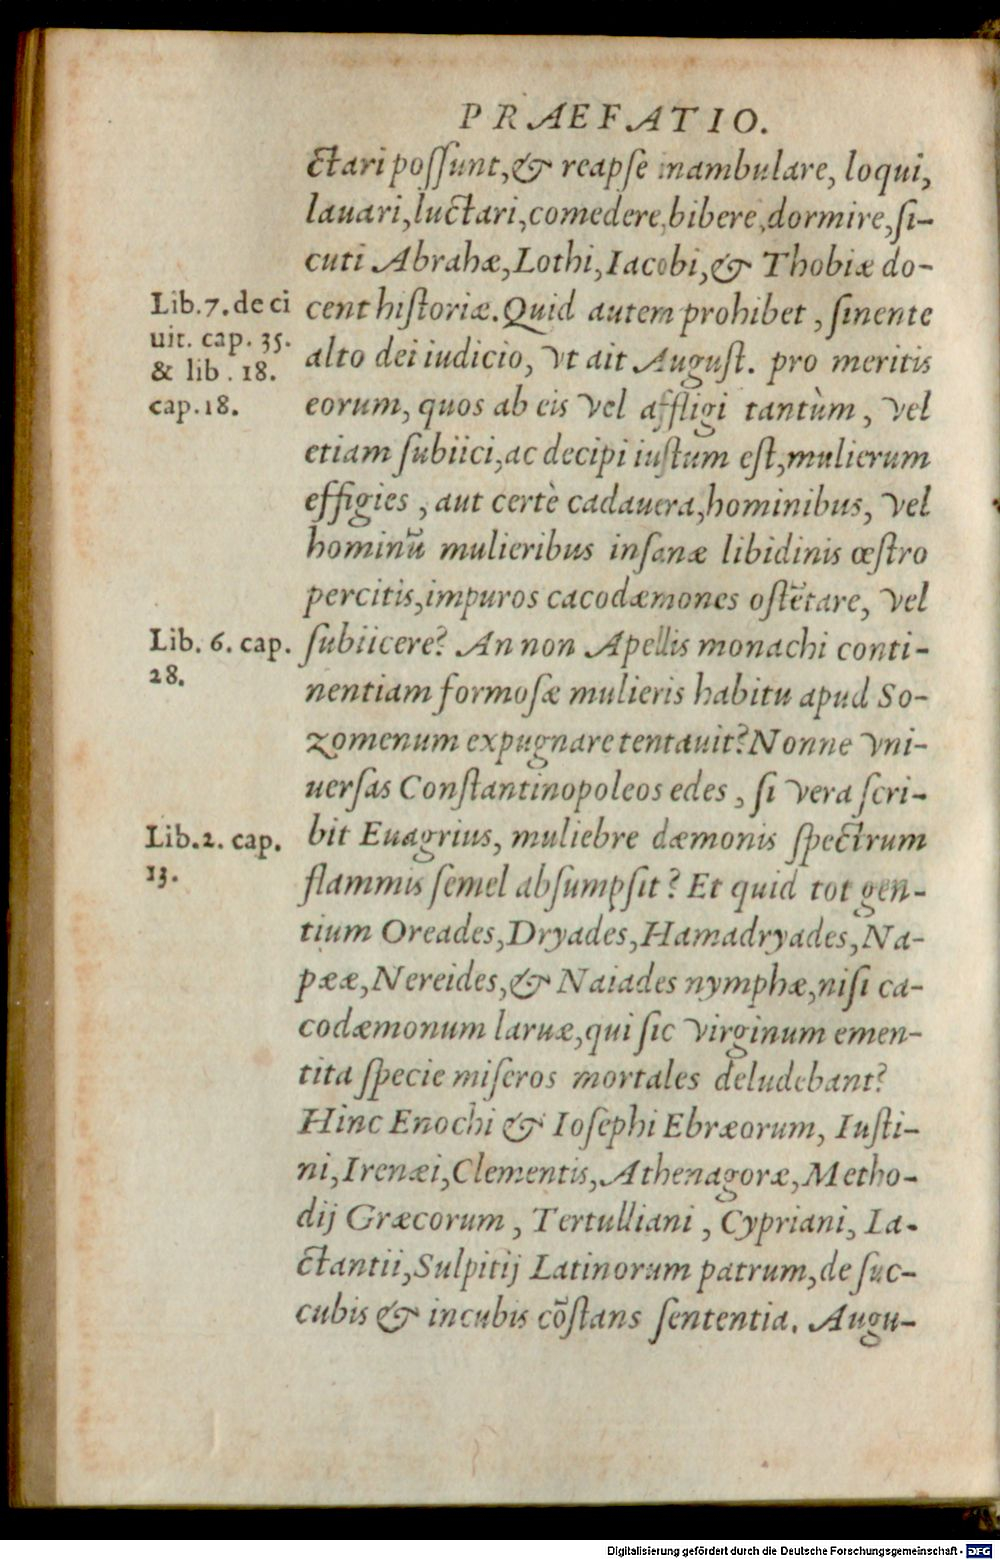 PRAEFATIO.
ctari possunt, & reapse inambulare, loqui,
lauari, luctari, comedere, bibere, dormire, si-
cuti Abrahæ, Lothi, Iacobi, & Thobiæ do-
Lib. 7. de ci
uit. cap. 35.
& lib. 18.
cap. 18.
cent historiæ. Quid autem prohibet, sinente
alto dei iudicio, vt ait August. pro meritis
eorum, quos ab eis vel affligi tantùm, vel
etiam subiici, ac decipi iustum est, mulierum
effigies, aut certè cadauera, hominibus, vel
hominū mulieribus insanæ libidinis œstro
percitis, impuros cacodæmones ostētare, vel
Lib. 6. cap.
28.
subiicere? An non Apellis monachi conti-
nentiam formosæ mulieris habitu apud So-
zomenum expugnare tentauit? Nonne vni-
uersas Constantinopoleos edes, si vera scri-
Lib. 2. cap.
13.
bit Euagrius, muliebre dæmonis spectrum
flammis semel absumpsit? Et quid tot gen-
tium Oreades, Dryades, Hamadryades, Na-
pææ, Nereides, & Naiades nymphæ, nisi ca-
codæmonum laruæ, qui sic virginum emen-
tita specie miseros mortales deludebant?
Hinc Enochi & Iosephi Ebræorum, Iusti-
ni, Irenæi, Clementis, Athenagoræ, Metho-
dij Græcorum, Tertulliani, Cypriani, La-
ctantii, Sulpitij Latinorum patrum, de suc-
cubis & incubis cōstans sententia. Augu-
Digitalisierung gefördert durch die Deutsche Forschungsgemeinschaft - DFG